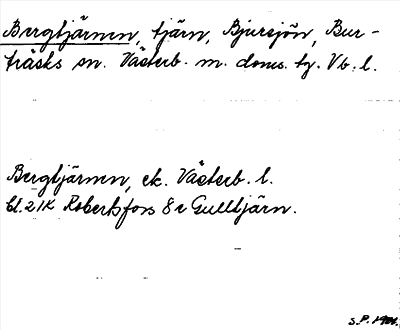 Bergtjärnen, tjärn, Bjursjön, Bur-
träsks sn. Västerb. m. doms. tg. Vb. l.
Bergtjärnen, ek. Västerb. l.
bl. 21K Robertsfors 8 e Gulltjärn.
S.P.